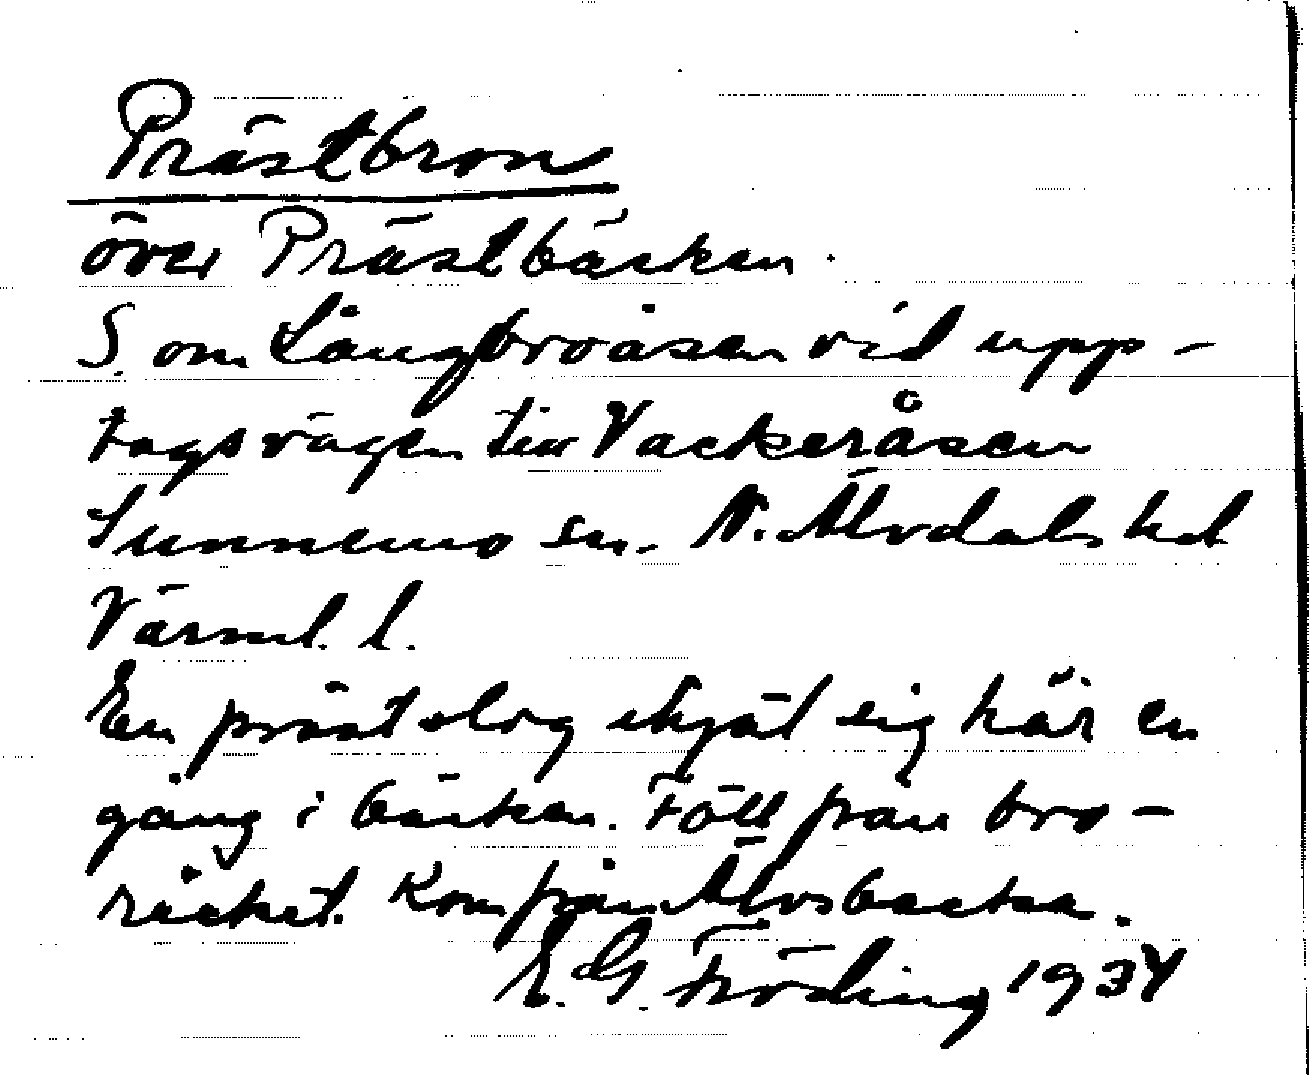 Prästbron
över Prästbäcken.
S. om Långbroåsen vid upp-
tagsvägen till Vackeråsen
Sunnemo sn. N. Älvdals hd
Värml. l.
En präst slog ihjäl sig här en
gång i bäcken. Föll från bro-
räcket. Kom från Älvsbacka.
E. G. Fröding 1934